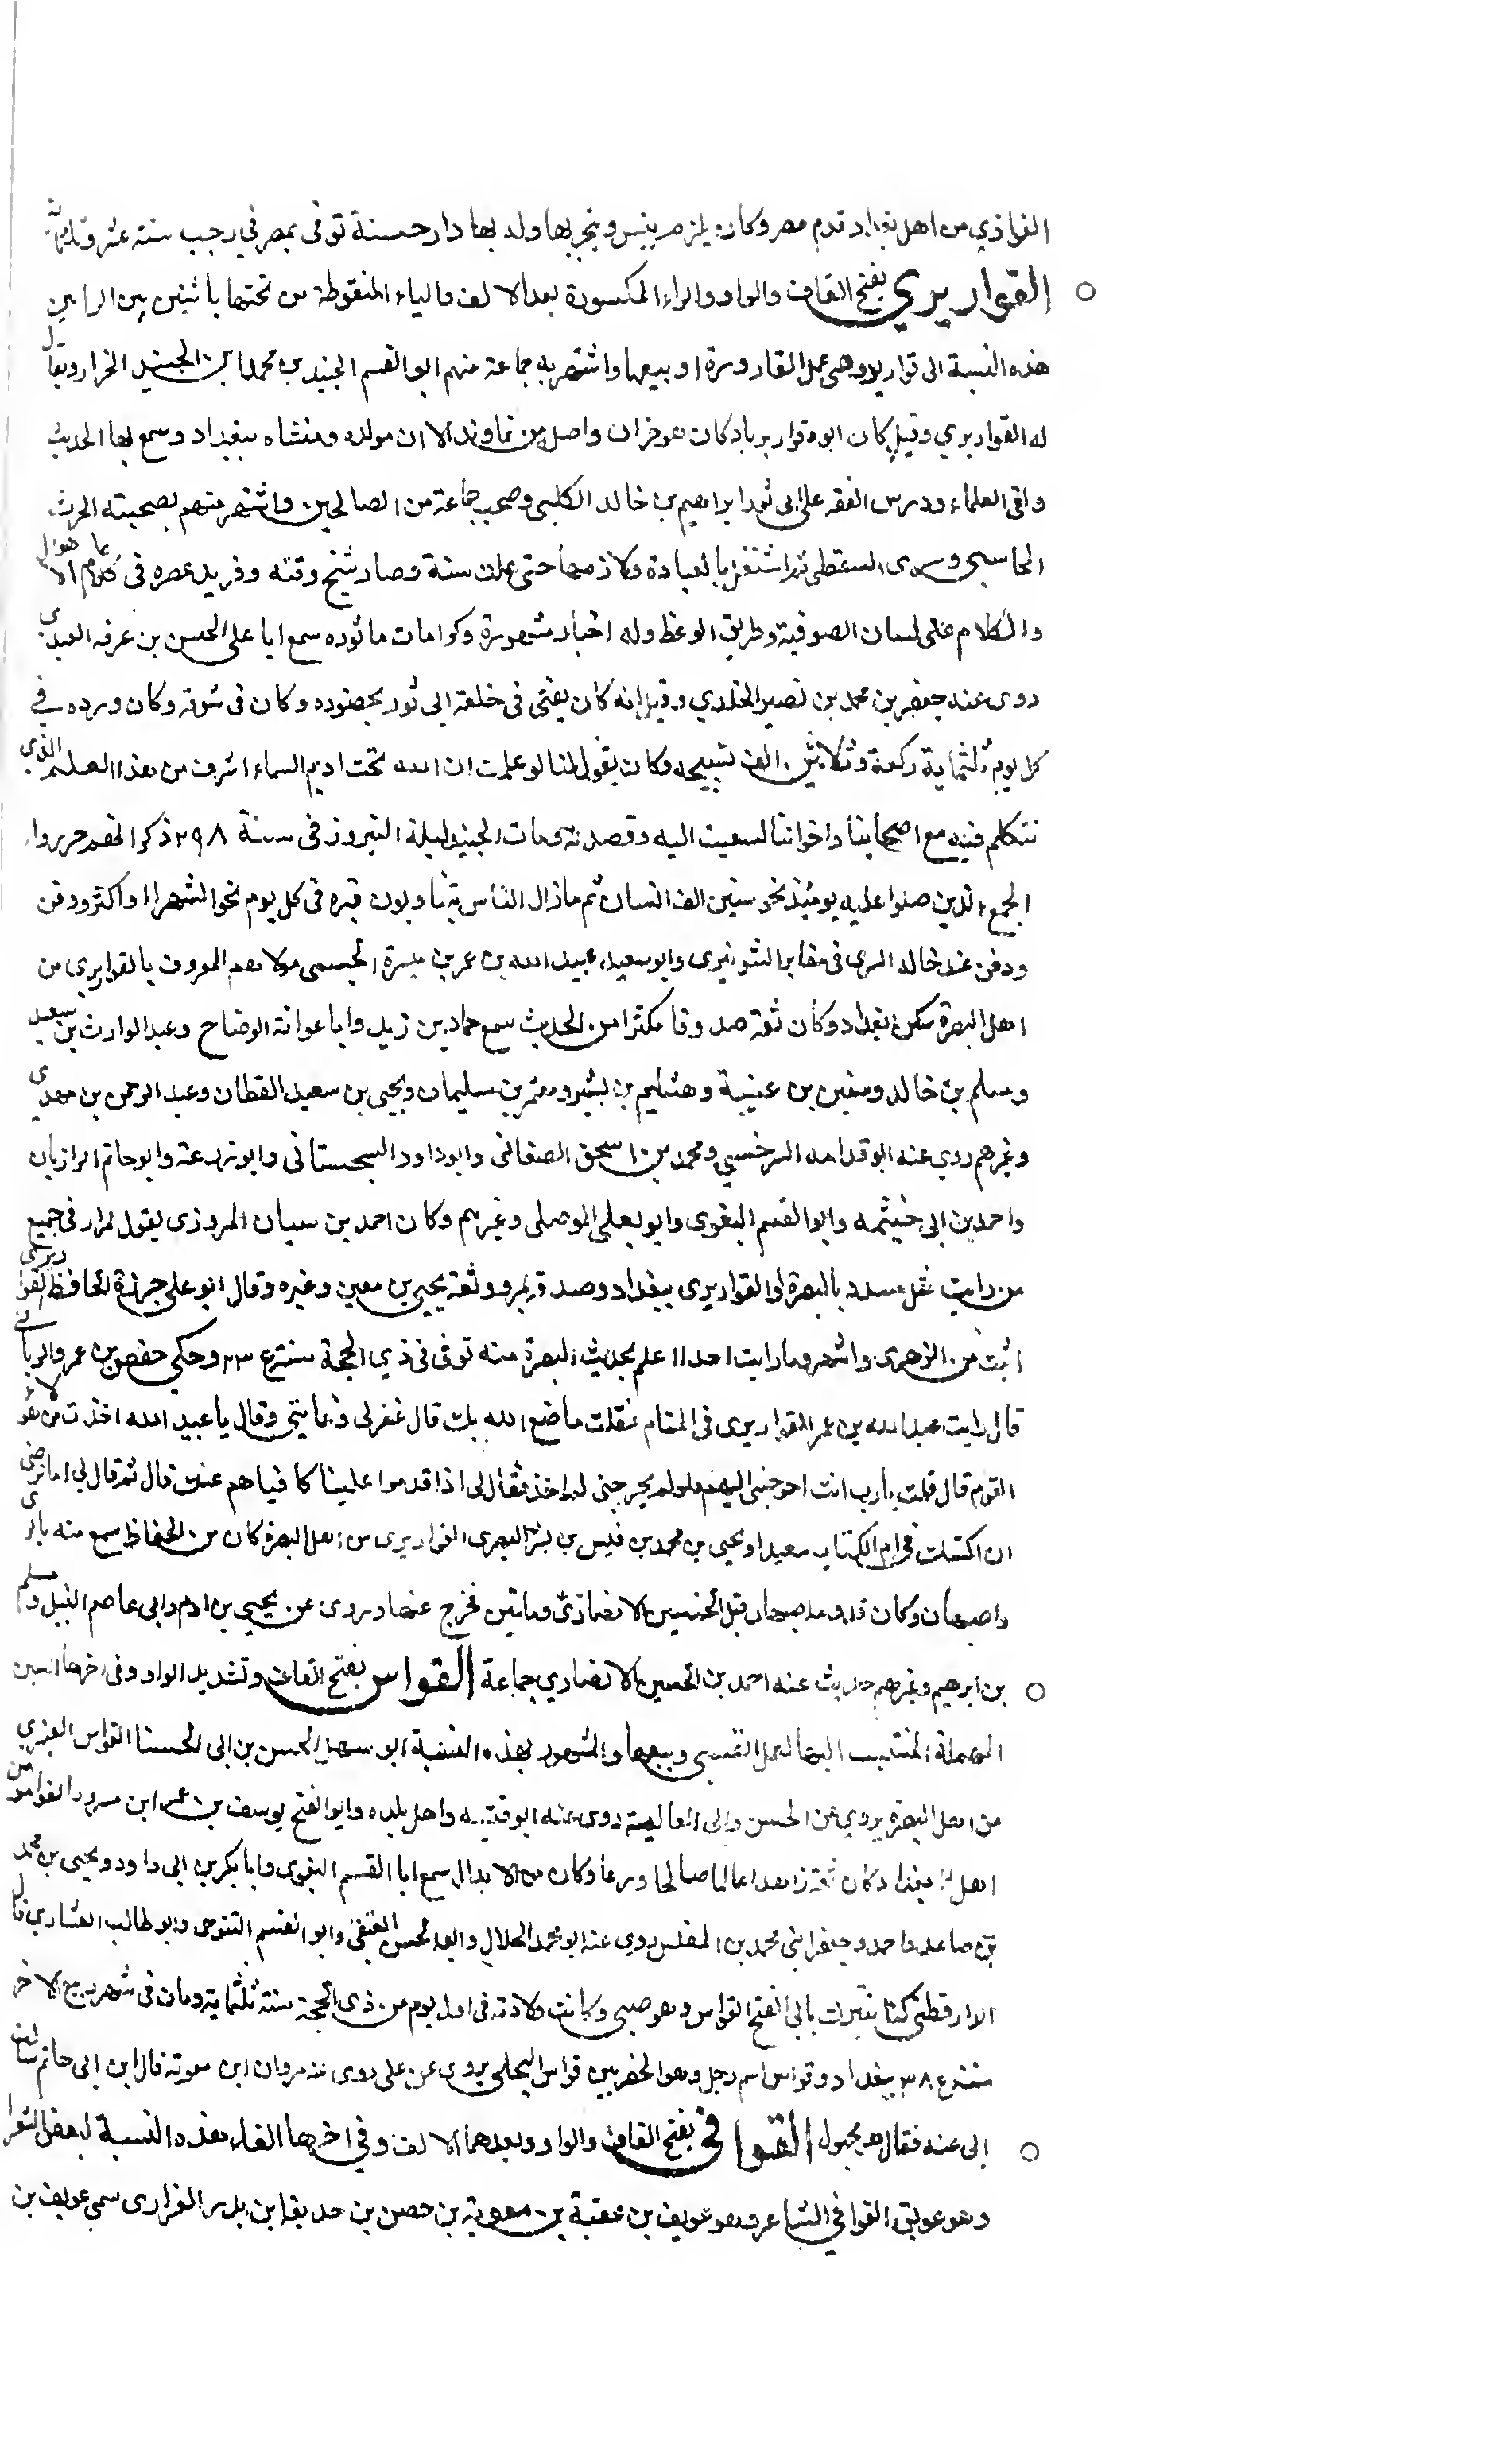 الغازي من اهل بغداد قدم مصر وكان يلزم تنيس ويتجر بها وله بها دار حسنة توفى بمصر في رجب سنة عشر وثلثمائة
القواريري بفتح القاف والواو والراء المكسورة بعد الالف والياء المنقوطة من تحتها باثنين بين الرايين
هذه النسبة الى قوارير وهى عمل القارورة او بيعها واشتهر به جماعة منهم ابو القسم الجنيد بن محمد ابن الجنيد الخزاز ويقال
له القواريري وقيل كان ابوه قواريريا وكان هو خزان واصله من نهاوند الا ان مولده ومنشاه ببغداد وسمع بها الحديث
ولقى العلماء ودرس الفقه على ابى ثور ابراهيم بن خالد الكلبى وصحب جماعة من الصالحين واشتهر منهم بصحبته الحرث
المحاسبى وسرى السقطى ثم اشتغل بالعبادة ولازمها حتى علت سنه وصار شيخ وقته وفريد عصره فى كلام الاحوال
والكلام على لسان الصوفية وطريق الوعظ وله اخبار مشهورة وكرامات ماثوره سمع ابا على الحسن بن عرفه العبدى
روى عنه جعفر بن محمد بن نصير الخلدي وقيل انه كان يفتى فى حلقة ابى ثور بحضوره وكان فى سوقه وكان ورده في
كل يوم ثلثماية ركعة وثلاثين الف تسبيحه وكان يقول لنا لو علمت ان الله تحت اديم السماء اشرف من هذا العلم الذي
نتكلم فيه مع اصحابنا واخواننا لسعيت اليه وقصدته ومات الجنيد ليلة النيروز فى سنة ٢٩٨ ذكر انهم حرروا
الجمع الذين صلوا عليه يومئذ نحو ستين الف انسان ثم مازال الناس يتناوبون قبره فى كل يوم نحو الشهر او اكثر ودفن
ودفن عند خاله السرى فى مقابر الشونيزى وابو سعيد عبيد الله بن عمر بن ميسرة الجسمى مولاهم المعروف بالقواريرى من
اهل البصرة سكن بغداد وكان ثقة صدوقا مكثرا من الحديث سمع حماد بن زيد وابا عوانة الوضاح وعبد الوارث بن سعيد
ومسلم بن خالد وسفين بن عيينة وهشيم بن بشير ومعتمر بن سليمان ويحيى بن سعيد القطان وعبد الرحمن بن مهدي
وغيرهم روي عنه ابو قدامه السرخسي ومحمد بن اسحق الصغانى وابو داود السجستانى وابو زرعة وابو حاتم الرازيان
واحمد بن ابى خيثمه وابو القسم البغوى وابو يعلى الموصلى وغيرهم وكان احمد بن سيان المروزى يقول لم ار فى جميع
من رايت مثل مسدد بالبصرة والقواريرى ببغداد وصدقه بمرو وثقه يحيى بن معين وغيره وقال ابو على جزرة الحافظ القواريرى
اثبت من الزهرى واشهر وما رايت احدا اعلم بحديث البصرة منه توفى فى ذي الحجة سنة ٢٣ وحكى حفص بن عمر والربانى
قال رايت عبيد الله بن عمر القواريرى فى المنام فقلت ما صنع الله بك قال غفر لى وعاتبنى وقال يا عبيد الله اخذت من هؤلاء
القوم قال قلت يارب انت احوجتنى اليهم ولو لم يحوجنى لم اخذ فقال لى اذا قدموا علينا كافيناهم عنك قال ثم قال لى اما ترضى
ان اكتبك فى ام الكتاب سعيدا ويحيى بن محمد بن قيس بن البصرى القواريرى من اهل البصرة كان من الحفاظ سمع منه بالرى
واصبهان وكان قدومه اصبهان قبل الخمسين وماتين فخرج عنها وروى عن يحيى بن ادم وابى عاصم النبيل ومسلم
بن ابرهيم وغيرهم حديث عنه احمد بن الحسين الانصاري جماعة القواس بفتح القاف وتشديد الواو وفى اخرها السين
المهملة المنتسب اليها لعمل القسى وبيعها والمشهور بهذه النسبة ابو سهل الحسن بن ابى الحسنا القواس العنبرى
من اهل البصرة يروي عن الحسن وابى العالية روى عنه ابو قتيبه واهل بلده وابو الفتح يوسف بن عمر ابن مسرور القواس من
اهل بغداد كان ثقة زاهدا عالما صالحا ورعا وكان من الابدال سمع ابا القسم البغوى وابا بكر بن ابى داود ويحيى بن محمد
بن صاعد واحمد وجعفر ابنى محمد بن المغلس روى عنه ابو محمد الخلال وابو الحسن العتيقى وابو القسم التنوخى وابو طالب العشاري قال
الدارقطنى كنا نتبرك بابى الفتح القواس وهو صبى وكانت ولادته فى اول يوم من ذى الحجة سنة ثلثماية ومات فى شهر ربيع الاخر
ببغداد وقواس اسم رجل وهو الحضرمين قواس البجلى يروى عن على روى عنه مروان ابن معوية قال ابن ابى حاتم سالت
ابى عنه فقال هو مجهول القوافى بفتح القاف والواو وبعدهما الالف وفي اخرها الفاء هذه النسبة لبعض الشعرا
وهو عويف القوافي الشاعر وهو عويف بن عقبة بن معوية بن حصن بن حديفا ابن بدر الفزارى سمى عويف بن